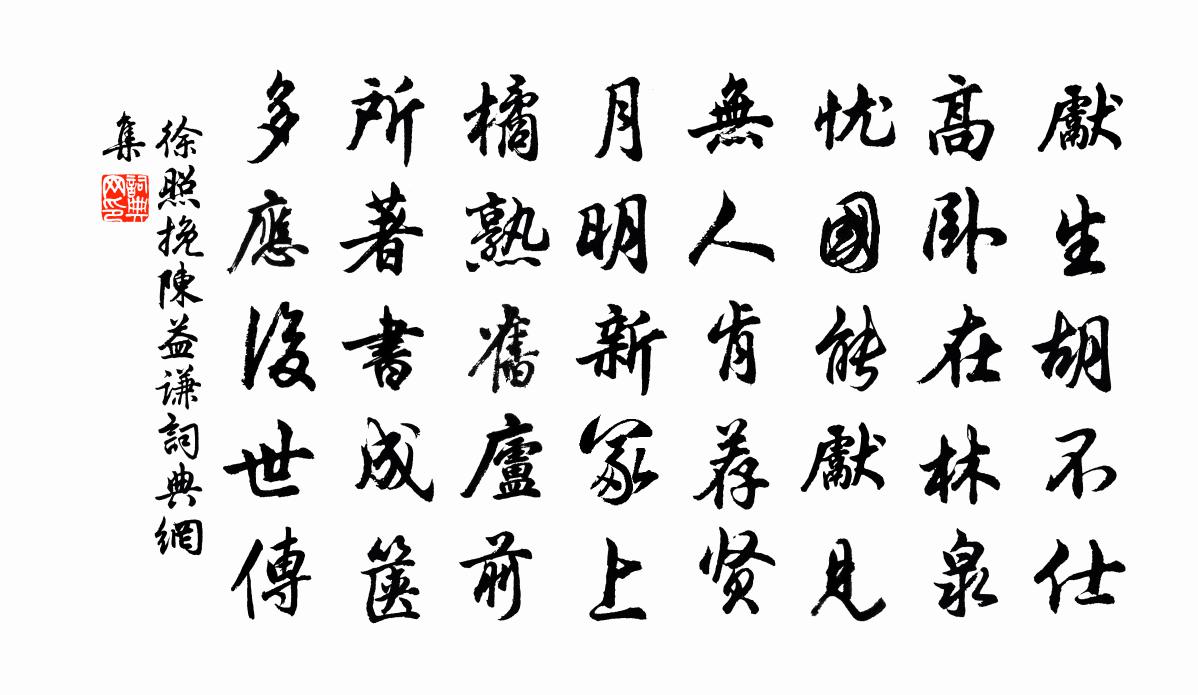 獻生胡不仕
高卧在林泉
忧國能獻見
無人肯荐贤
月明新冢上
橘熟舊廬前
所著書成箧
多應後世傳
徐照挽陳益谦詞典網
集
詞典网印